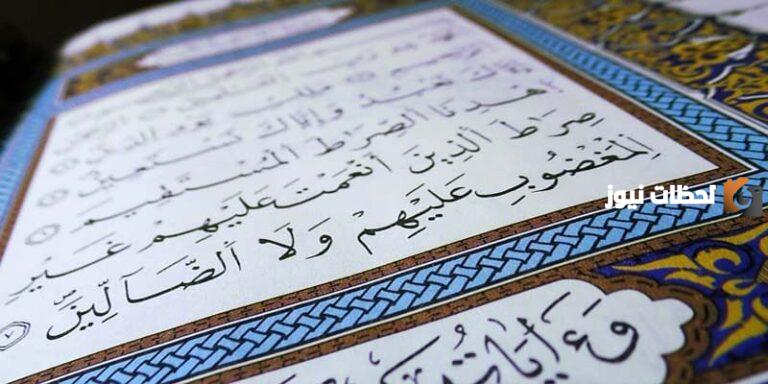 مَلِكِ يَوْمِ الدِّينِ
إِيَّاكَ نَعْبُدُ وَإِيَّاكَ نَسْتَعِينُ
ٱهْدِنَا ٱلصِّرَاطَ ٱلْمُسْتَقِيمَ
صِرَاطَ ٱلَّذِينَ أَنْعَمْتَ عَلَيْهِمْ غَيْرِ
ٱلْمَغْضُوبِ عَلَيْهِمْ وَلَا ٱلضَّآلِّينَ ٧
لحظات نيوز